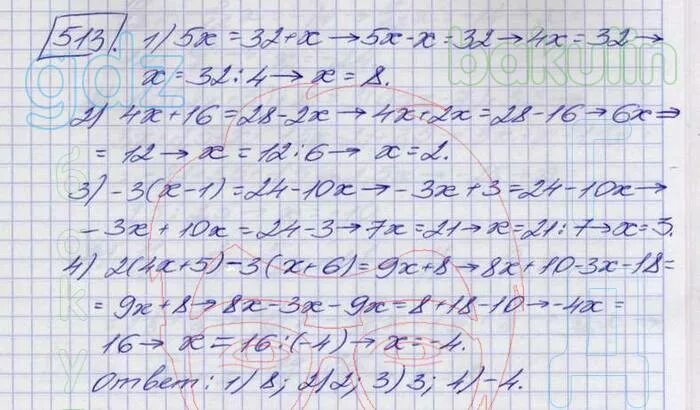 513. 1) 5x = 32+x → 5x-x = 32 → 4x = 32 →
x = 32 : 4 → x = 8.
2) 4x + 16 = 28 - 2x → 4x + 2x = 28 - 16 → 6x =
= 12 → x = 12 : 6 → x = 2.
3) -3(x-1) = 24 - 10x → -3x + 3 = 24 - 10x →
-3x + 10x = 24 - 3 → 7x = 21 → x = 21 : 7 → x = 3.
4) 2(4x+5) - 3(x+6) = 9x+8 → 8x + 10 - 3x - 18 =
= 9x + 8 → 8x - 3x - 9x = 8 + 18 - 10 → -4x =
16 → x = 16 : (-4) → x = -4.
Ответ: 1) 8; 2) 2; 3) 3; 4) -4.
gdz
bakulin